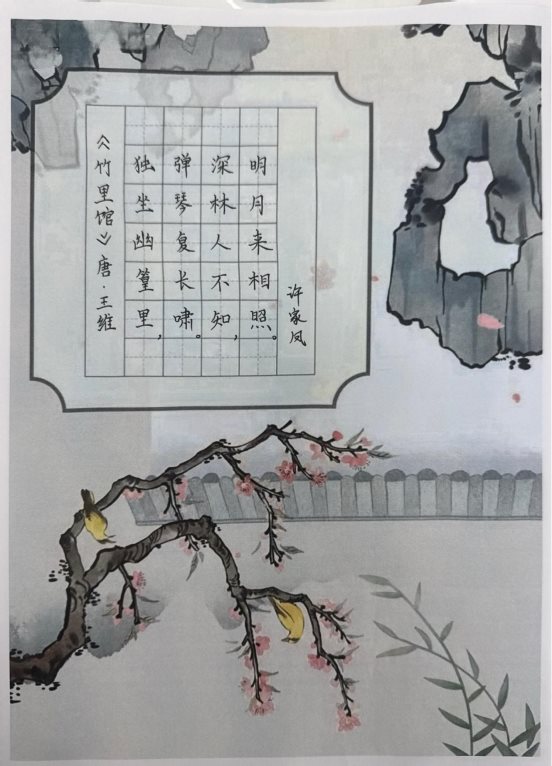 《竹里馆》唐·王维
独坐幽篁里，
弹琴复长啸。
深林人不知，
明月来相照。
许家凤